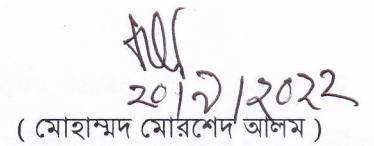 ২০/৩/২০২২
( মোহাম্মদ মোরশেদ আলম )